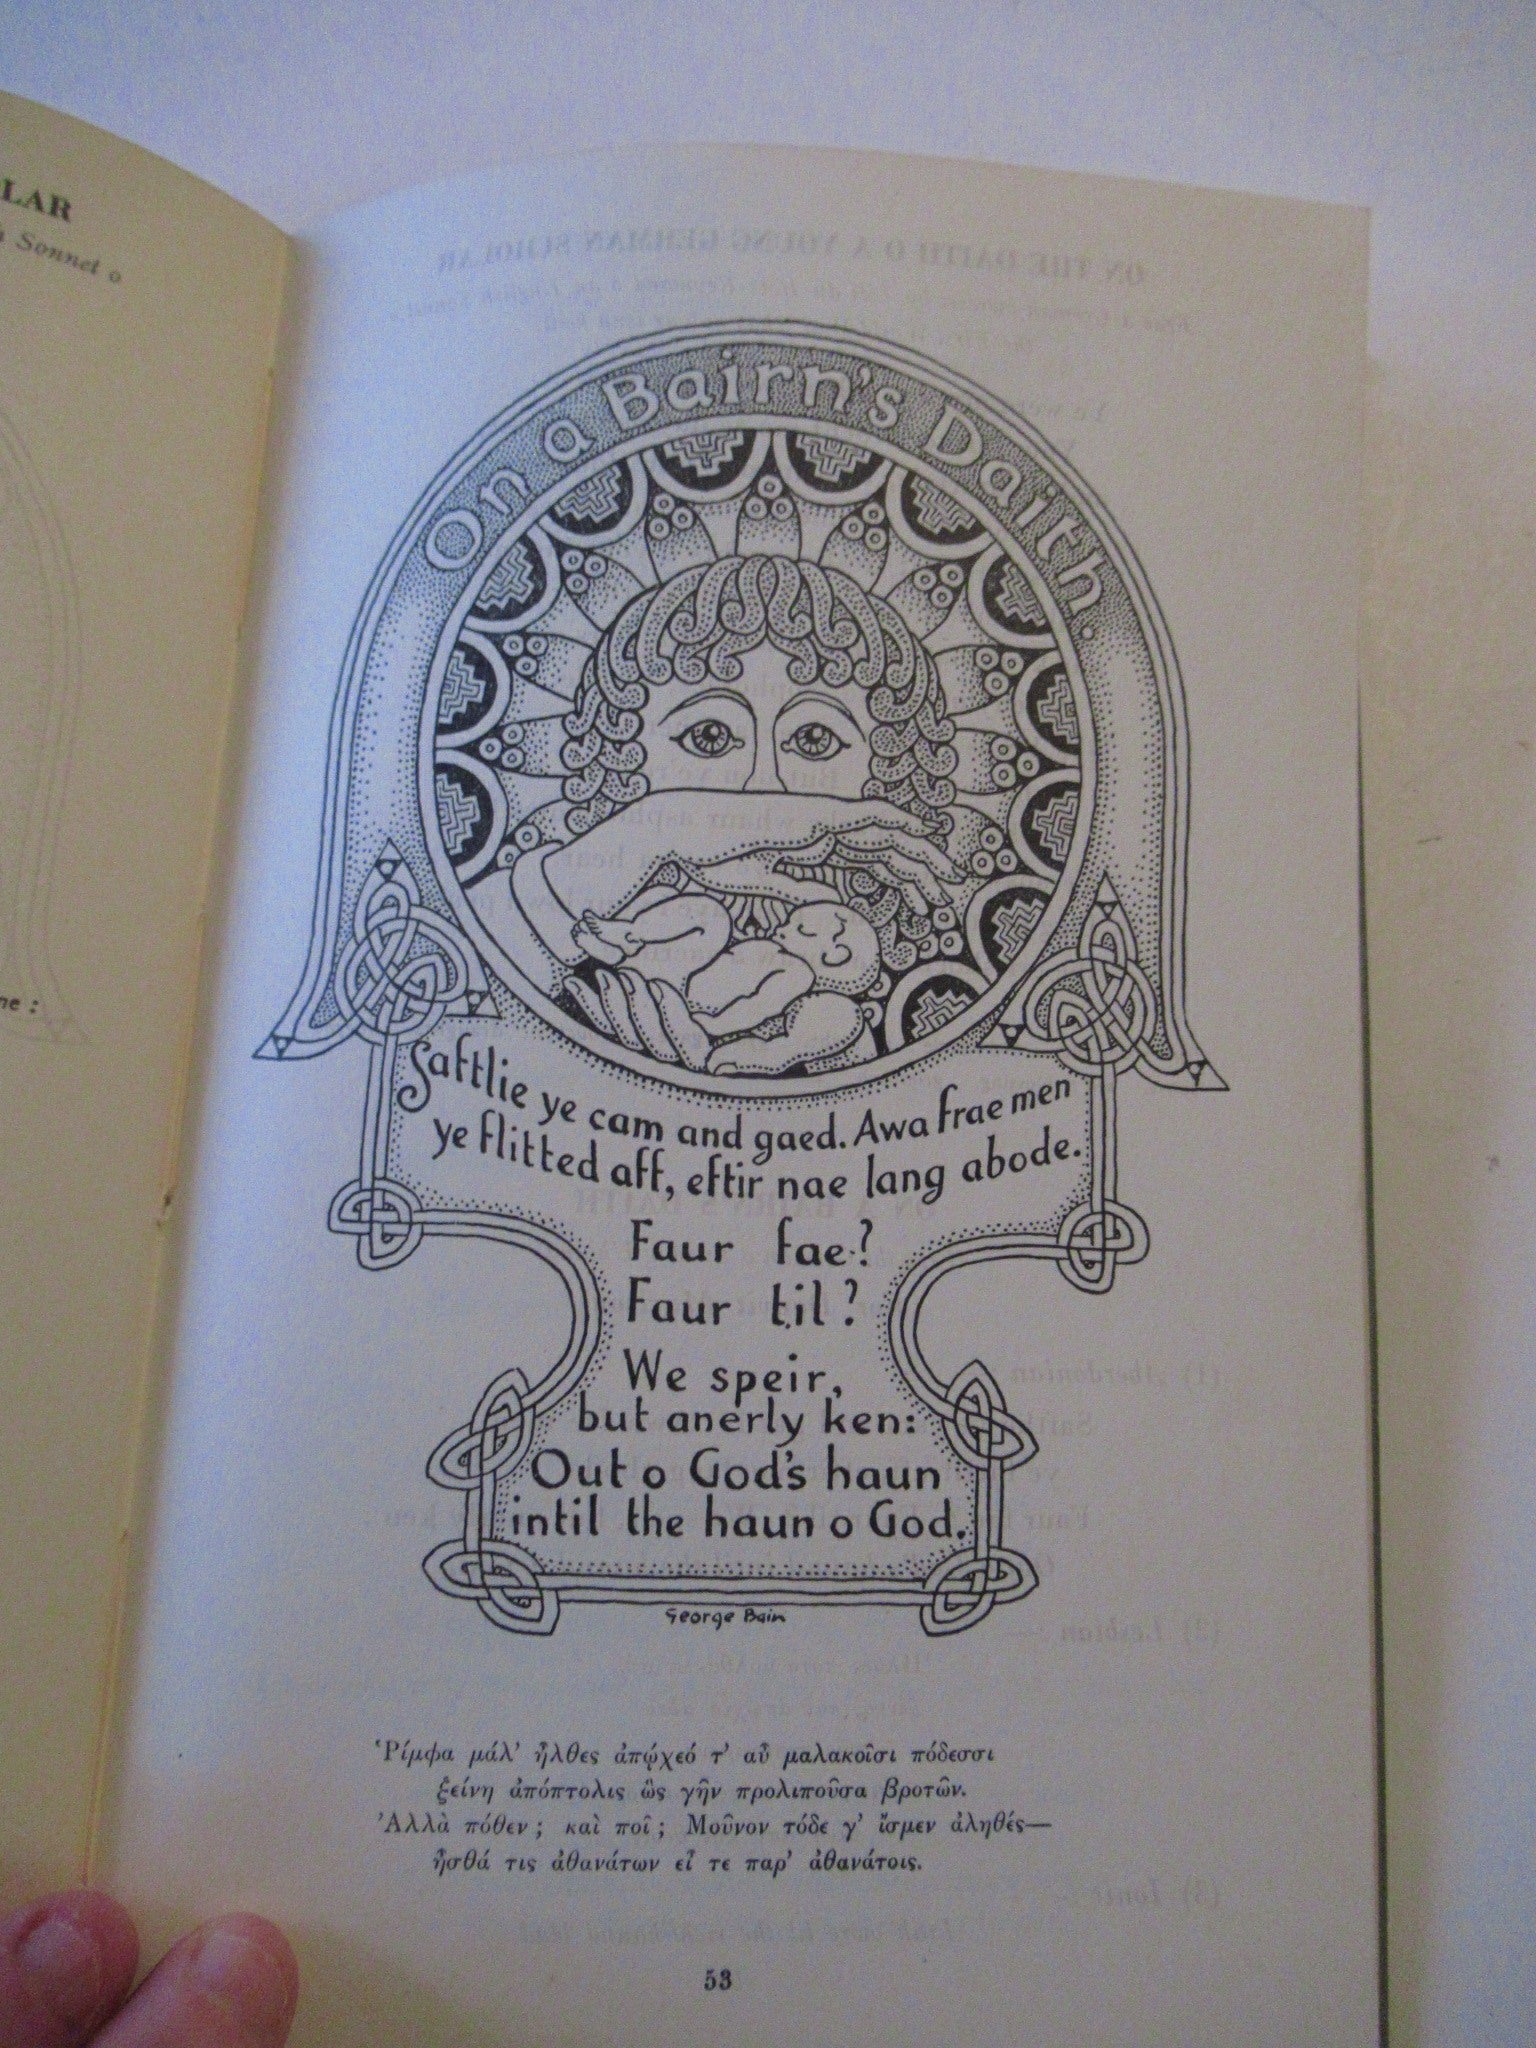 LAR
Sonnet o
ne :
On a Bairn's Daith.
Saftlie ye cam and gaed. Awa frae men
ye flitted aff, eftir nae lang abode.
Faur fae?
Faur til?
We speir,
but anerly ken:
Out o God's haun
intil the haun o God.
George Bain
Ῥίμφα μάλ' ἦλθες ἀπῴχεό τ' αὖ μαλακοῖσι πόδεσσι
ξείνη ἀπόπτολις ὣς γῆν προλιποῦσα βροτῶν.
Ἀλλὰ πόθεν ; καὶ ποῖ ; Μοῦνον τόδε γ' ἴσμεν ἀληθές—
ἦσθά τις ἀθανάτων εἶ τε παρ' ἀθανάτοις.
53